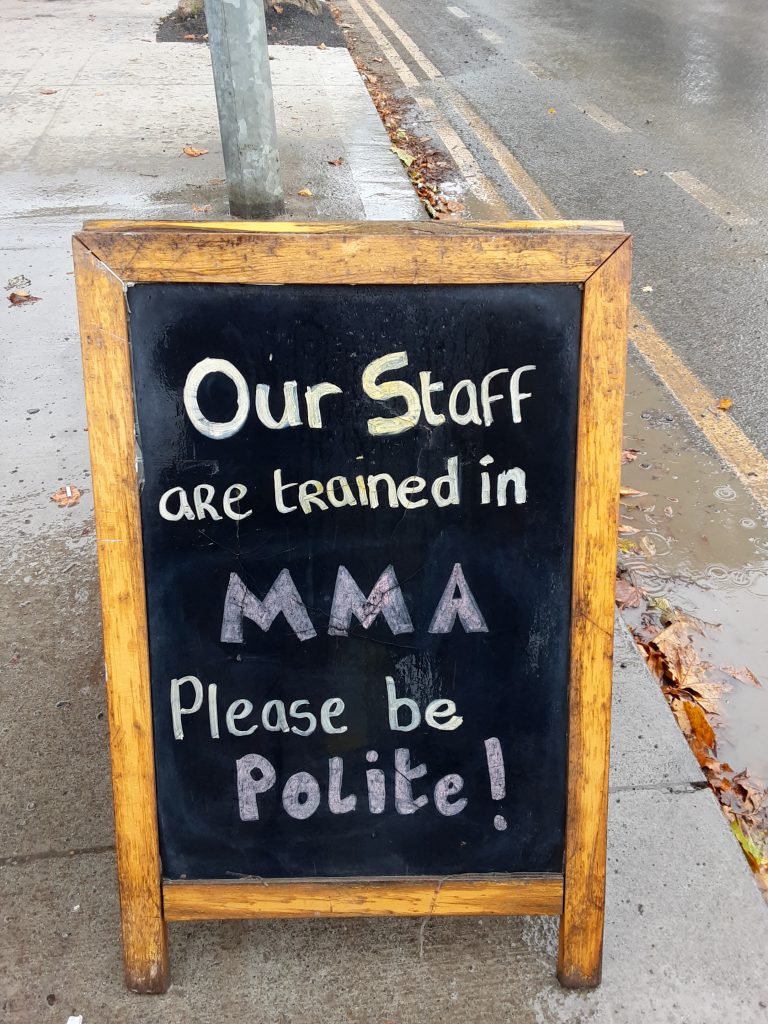 Our Staff
are trained in
MMA
Please be
Polite!